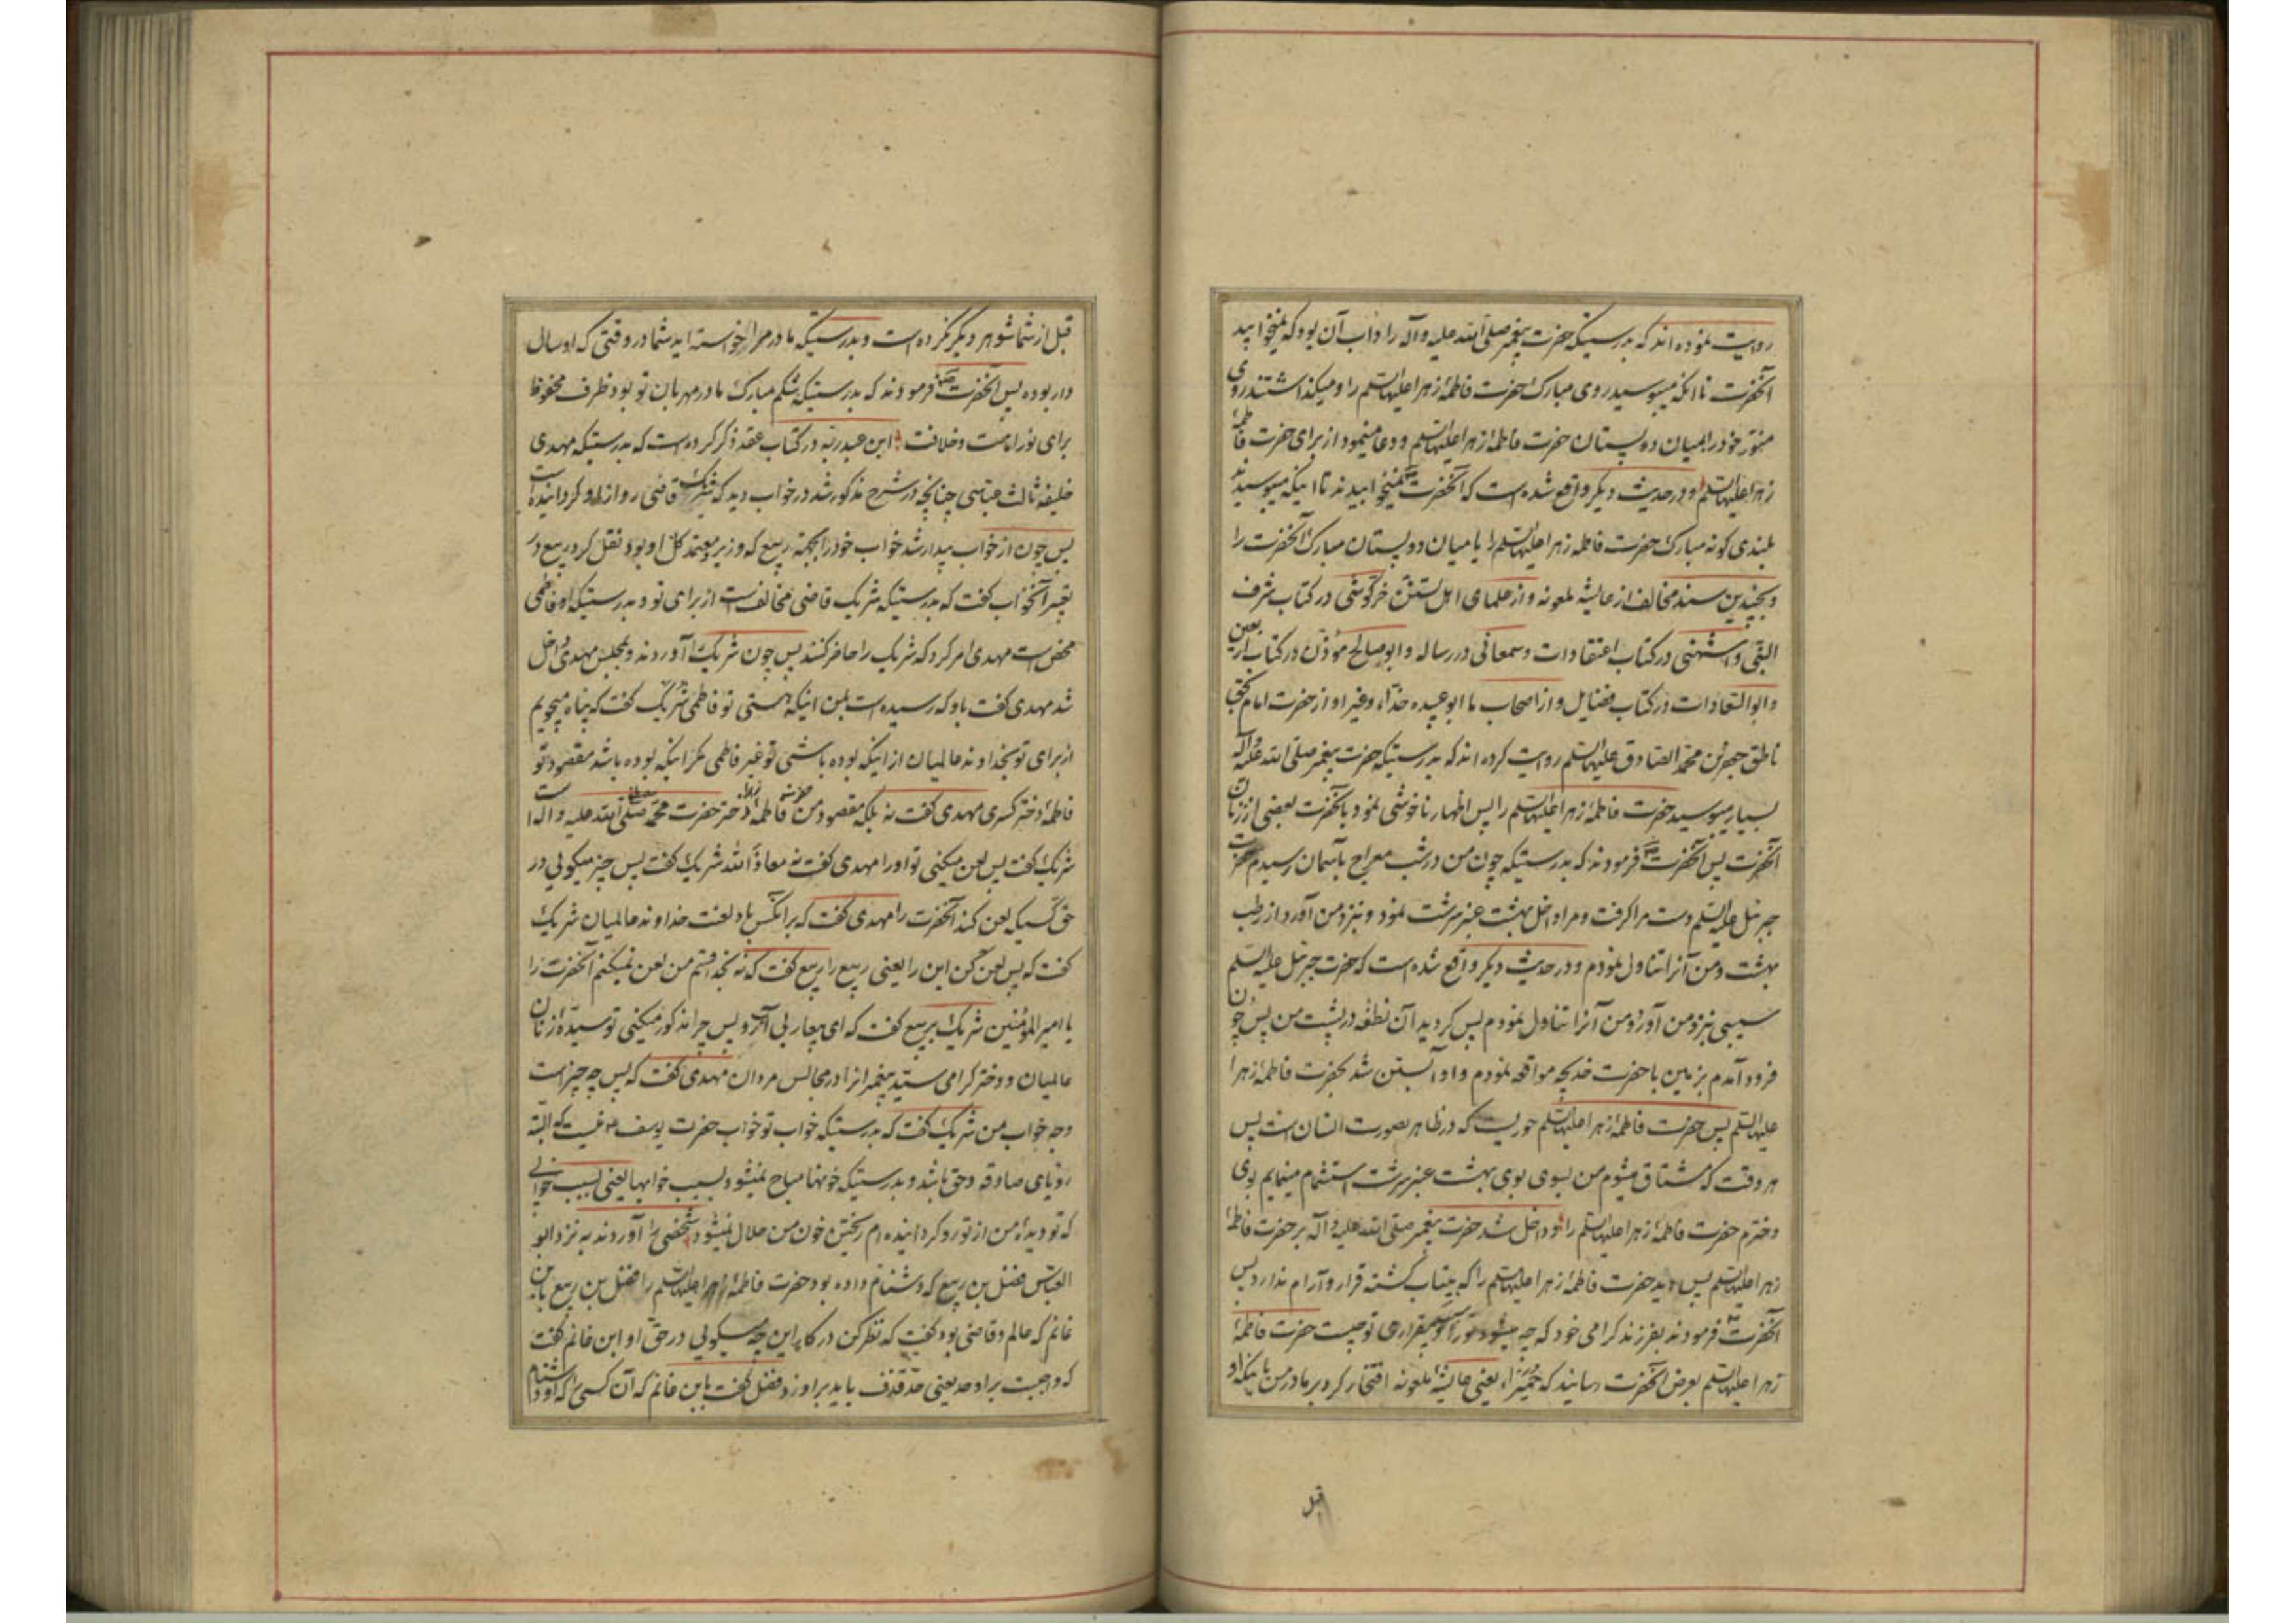 روایت نموده‌اند که بدرستیکه حضرت پیغمبر صلی الله علیه و آله را داب آن بود که نمیخوابید
آنحضرت تا آنکه میبوسید روی مبارک حضرت فاطمهٔ زهرا علیها السلم را و میکذاشتند روی
منور خود را بمیان دو پستان حضرت فاطمهٔ زهرا علیها السلم و دعا مینمود از برای حضرت فاطمهٔ
زهرا علیها السلم و در حدیث دیکر واقع شده است که آنحضرت نمیخوابیدند تا اینکه میبوسیدند
بلندی کونه مبارک حضرت فاطمه زهرا علیها السلم را یا میان دو پستان مبارک آنحضرت را
و بچندین سند مخالف از عایشه ملعونه و از علمای اهل تسنن خرکوشی در کتاب شرف
النبی و اشنهی در کتاب اعتقادات و سمعانی در رساله و ابو صالح مؤذن در کتاب اربعین
و ابو السعادات در کتاب فضایل و از اصحاب ما ابو عبیده حذاء و غیر او از حضرت امام بحق
ناطق جعفر بن محمد الصادق علیهما السلم روایت کرده‌اند که بدرستیکه حضرت پیغمبر صلی الله علیه و آله
بسیار میبوسید حضرت فاطمهٔ زهرا علیها السلم را پس اظهار ناخوشی نمود بآنحضرت بعضی از زنان
آنحضرت پس آنحضرت فرمودند که بدرستیکه چون من در شب معراج بآسمان رسیدم حضرت
جبرئیل علیه السلم دست مرا کرفت و مرا داخل بهشت عنبر سرشت نمود و بنزد من آورد از رطب
بهشت و من آنرا تناول نمودم و در حدیث دیکر واقع شده است که حضرت جبرئیل علیه السلم
سیبی بنزد من آورد و من آنرا تناول نمودم پس کردید آن نطفه در پشت من پس چون
فرود آمدم بزمین با حضرت خدیجه مواقعه نمودم و او آبستن شد بحضرت فاطمهٔ زهرا
علیها السلم پس حضرت فاطمهٔ زهرا علیها السلم حوریست که در ظاهر بصورت انسان است پس
هر وقت که مشتاق میشوم من بسوی بوی بهشت عنبر سرشت استشمام مینمایم بوی
دخترم حضرت فاطمهٔ زهرا علیها السلم را و داخل شد حضرت پیغمبر صلی الله علیه و آله بر حضرت فاطمهٔ
زهرا علیها السلم پس دید حضرت فاطمهٔ زهرا علیها السلم را که بیتاب کشته قرار و آرام ندارد پس
آنحضرت فرمودند بفرزند کرامی خود که چه میشود تو را بیقراری تو چیست حضرت فاطمهٔ
زهرا علیها السلم بعرض آنحضرت رسانید که حمیرا یعنی عایشه ملعونه افتخار کرد بر مادر من باینکه او
قبل
قبل از شما شوهر دیکر نکرده است و بدرستیکه مادر مرا خواسته‌اید شما در وقتی که او سال
دار بوده پس آنحضرت فرمودند که بدرستیکه شکم مبارک مادر مهربان تو بود ظرف محفوظ
برای نور امامت و خلافت ابن عبد ربه در کتاب عقد ذکر کرده است که بدرستیکه مهدی
خلیفه ثالث عباسی چنانچه در شرح مذکور شد در خواب دید که شریک قاضی رو از او کردانیده است
پس چون از خواب بیدار شد خواب خود را بجهة ربیع که وزیر و معتمد کل او بود نقل کرد ربیع در
تعبیر آنخواب کفت که بدرستیکه شریک قاضی مخالفست از برای تو و بدرستیکه او فاطمی
محض است مهدی امر کرد که شریک را حاضر کنند پس چون شریک را آوردند و بمجلس مهدی داخل
شد مهدی کفت باو که رسیده است بمن اینکه هستی تو فاطمی شریک کفت که پناه میجویم
از برای تو بخداوند عالمیان از اینکه بوده باشی تو غیر فاطمی مکر اینکه بوده باشد مقصود تو
فاطمهٔ دختر کسری مهدی کفت نه بلکه مقصود من فاطمهٔ زهرا دختر حضرت محمد مصطفی صلی الله علیه و آله است
شریک کفت پس لعن میکنی تو او را مهدی کفت نه معاذ الله شریک کفت پس چیز میکوئی در
حق کسیکه لعن کند آنحضرت را مهدی کفت که بر آنکس باد لعنت خداوند عالمیان شریک
کفت که پس لعن کن این را یعنی ربیع را ربیع کفت که نه بخدا قسم من لعن نمیکنم آنحضرت را
یا امیر المؤمنین شریک بربیع کفت که ای بیعار بی آبرو پس چرا مذکور میکنی تو سیدهٔ زنان
عالمیان و دختر کرامی سید پیغمبرانرا در مجالس مردان مهدی کفت که پس چه چیز است
وجه خواب من شریک کفت که بدرستیکه خواب تو خواب حضرت یوسف نیست که البته
رؤیای صادقه و حق باشد و بدرستیکه خونها مباح نمیشود بسبب خوابها یعنی بسبب خوابی
که تو دیدهٔ من از تو رو کردانیده‌ام ریختن خون من حلال نمیشود شخصی را آوردند به نزد ابو
العباس فضل بن ربیع که دشنام داده بود حضرت فاطمهٔ زهرا علیها السلم را فضل بن ربیع بابن
غانم که عالم و قاضی بود کفت که نظر کن در کار این چه میکوئی در حق او ابن غانم کفت
که واجبست بر او حد یعنی حد قذف باید بر او زد فضل کفت بابن غانم که آن کسی را که او دشنام